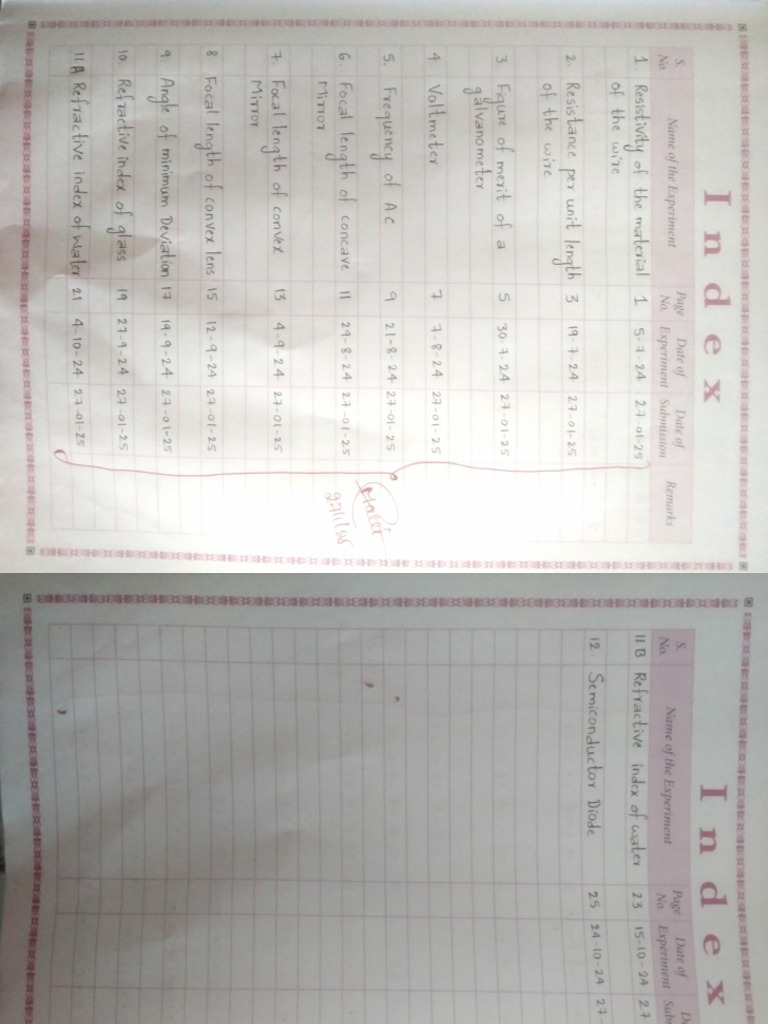 Index
S. No. Name of the Experiment Page No. Date of Experiment Date of Submission Remarks
1. Resistivity of the material 1 5-7-24 27-01-25
of the wire
2. Resistance per unit length 3 19-7-24 27-01-25
of the wire
3 Figure of merit of a 5 30-7-24 27-01-25
galvanometer
4 Voltmeter 7 7-8-24 27-01-25
5. Frequency of Ac 9 21-8-24 27-01-25
6. Focal length of concave 11 29-8-24 27-01-25
Mirror
7. Focal length of convex 13 4-9-24 27-01-25
Mirror
8 Focal length of convex lens 15 12-9-24 27-01-25
9 Angle of minimum Deviation 17 19-9-24 27-01-25
10. Refractive index of glass 19 27-9-24 27-01-25
11 A Refractive index of water 21 4-10-24 27-01-25
27/1/25
Index
S. No. Name of the Experiment Page No. Date of Experiment
11 B Refractive index of water 23 15-10-24 27
12. Semiconductor Diode 25 24-10-24 27